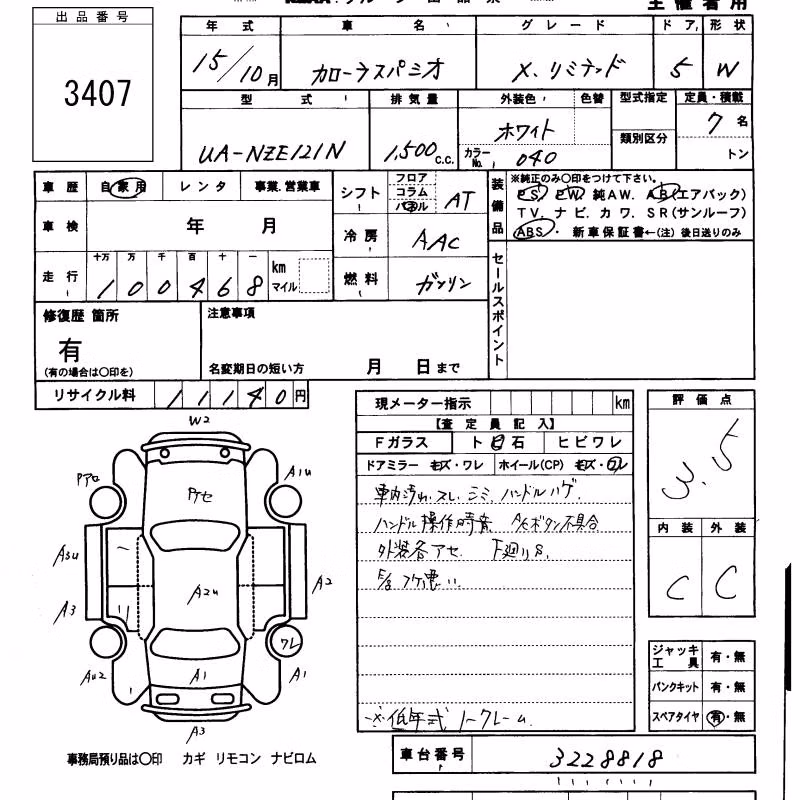 出品番号
3407
主催者用
年式 車名 グレード ドア 形状
15/10月 カローラスパシオ X.リミテッド 5 W
型式 排気量 外装色 色替 型式指定 定員・積載
UA-NZE121N 1,500c.c. ホワイト 類別区分 7名
カラーNo. 040 トン
車歴 自家用 レンタ 事業.営業車
シフト フロア コラム パネル AT
装備品
※純正のみ○印をつけて下さい。
PS. PW. 純AW. AB(エアバック)
TV. ナビ. カワ. SR(サンルーフ)
ABS・ 新車保証書←(注) 後日送りのみ
車検 年 月
冷房 AAC
走行 十万 万 千 百 十 一
100468 km マイル
燃料 ガソリン
セールスポイント
修復歴 箇所
有
(有の場合は○印を)
注意事項
名変期日の短い方 月 日まで
リサイクル料 11140円
現メーター指示 km
【査定員記入】
Fガラス ト日石 ヒビワレ
ドアミラー キズ・ワレ ホイール(CP) キズ・ワレ
車内汚れ.スレ.シミ.ハンドルハゲ.
ハンドル操作時音 A/Cボタン不具合
外装各アセ. F廻りS.
※低年式ノークレーム.
評価点
3.5
内装 外装
C C
ジャッキ 工具 有・無
パンクキット 有・無
スペアタイヤ 有・無
W2
A1u
Pアセ
A2u
A2
A3
A1
ワレ
A1
A3
事務局預り品は○印 カギ リモコン ナビロム
車台番号 3228818